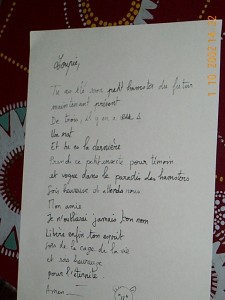 Tu as été mon petit hamster du futur
maintenant présent
De trois, il y en a eu 4
Un rat
Et tu es la dernière
Prends ce petit insecte pour Umom
et vogue dans le paradis des hamsters
Sois heureuse et attends nous
Mon amie
Je n'oublierai jamais ton nom
Libère enfin ton esprit
sors de la cage de la vie
et sois heureuse
pour l'éternité.
Amen